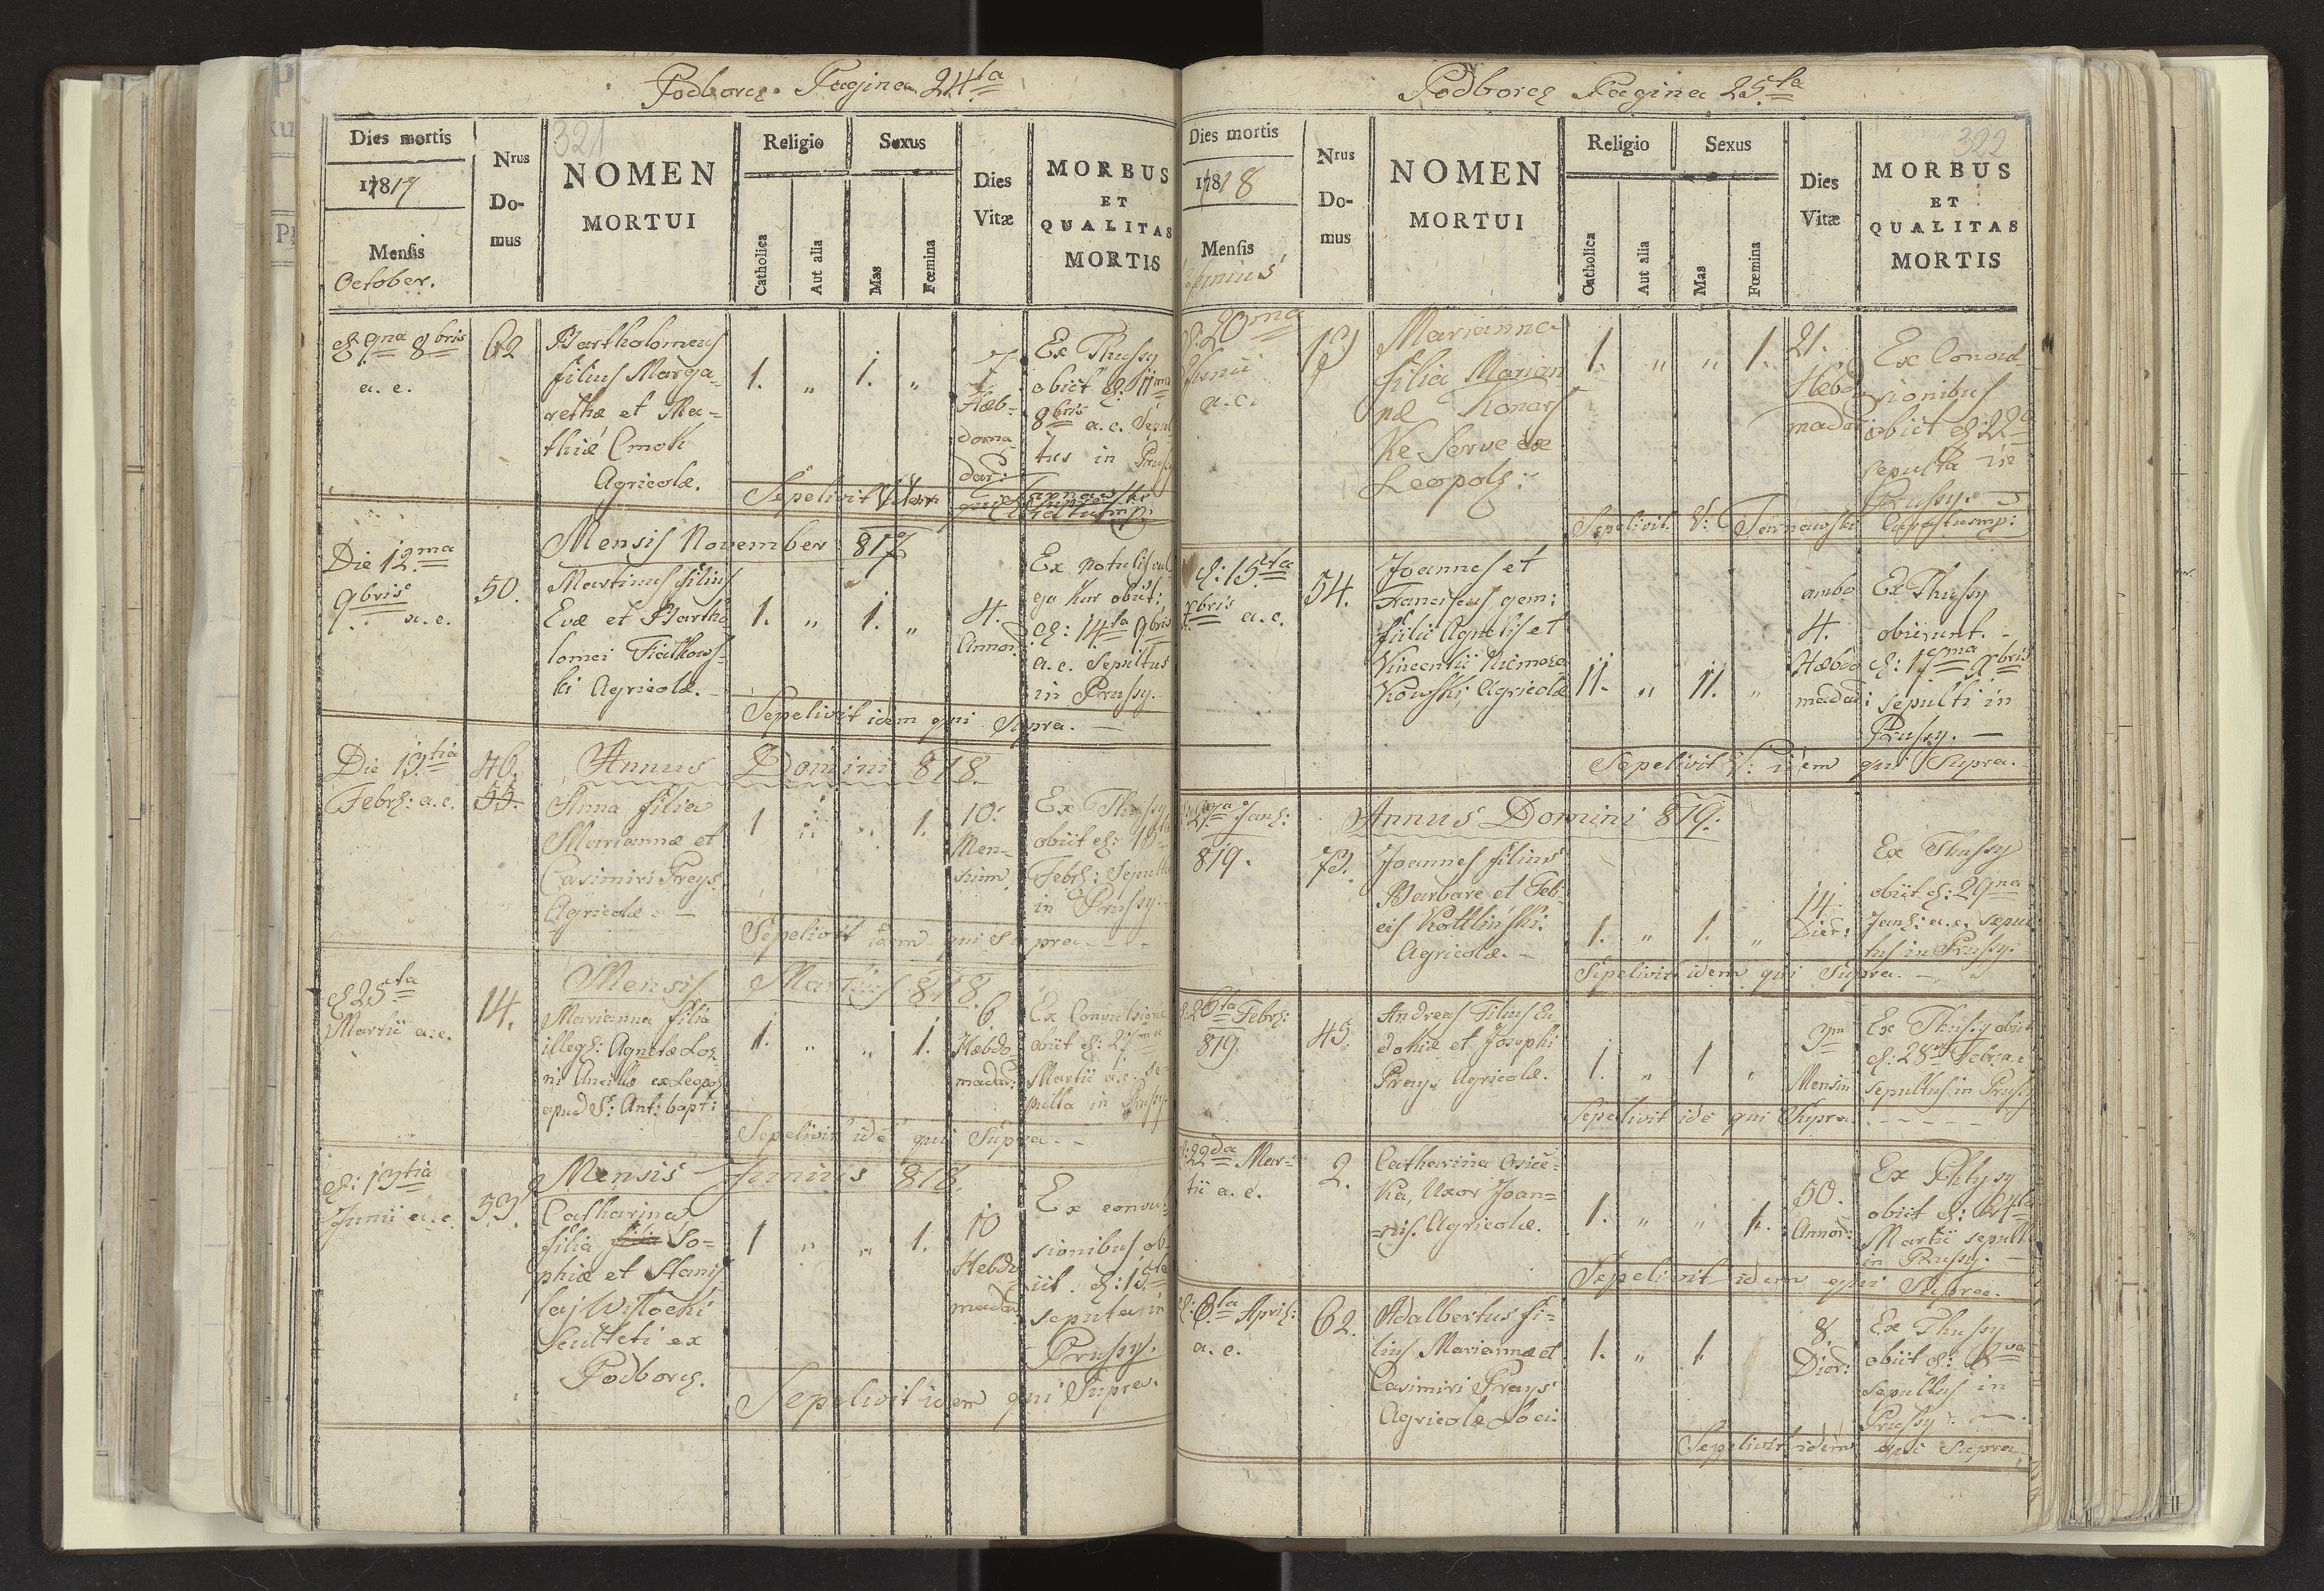 Podborcz. Pagina 24ta
321
Dies mortis
17817
Mensis
October.
Nrus
Do-
mus
NOMEN
MORTUI
Religio
Catholica
Aut alia
Sexus
Mas
Fœmina
Dies
Vitæ
MORBUS
ET
QUALITAS
MORTIS
d. 9na 8bris
a. c.
62
Bartholomeus
filius Marga-
rethæ et Ma-
thiæ Cmok
Agricolæ.
1. „ 1. „
7
Hæb-
doma-
dar:
Ex Thussy
obiit d. 11ma
8bris a. c. Sepul
tus in Prussy
Sepelivit
Mensis November 817
Die 12ma
9bris
a. c.
50.
Martinus filius
Evæ et Bartho
lomei Fiałkows-
ki Agricolæ.
1. „ 1. „
4.
Annor.
Ex
go Kur obiit:
d: 14ta 9bris
a. c. Sepultus
in Prussy.
Sepelivit idem qui Supra.
Annus Domini 818.
Die 13tia
Febr: a. c.
46.
55.
Anna filia
Mariannæ et
Casimiri Preys
Agricolæ.
1 „ „ 1.
10.
Men-
sium
Ex Thussy
obiit d:
Febr: Sepulta
in Prussy.
Sepelivit idem qui Supra
Mensis Martius 818.
d 25ta
Martii a. c.
14.
Marianna filia
illeg: Agnetæ Loz
ni Ancillæ ex Leopol
apud S: Ant: bapt:
1. „ „ 1.
6
Hæbdo-
madar:
Ex Convulsione
obiit d: 27ma
Martii a. c. se-
pulta in Prussy.
Sepelivit ide qui Supra
Mensis Junius 818.
d: 13tia
Junii a. c.
53.
Catharina
filia filia So-
phiæ et Stanis
laj Wisłocki
Sculteti ex
Podborcz.
1 „ „ 1.
10
Hebdo
madar
Ex convul-
sionibus ob-
iit d: 15ta
sepulta in
Prussy.
Sepelivit idem qui Supra.
Podborcz Pagina 25ta
322
Dies mortis
17818
Mensis
Junius
Nrus
Do-
mus
NOMEN
MORTUI
Religio
Catholica
Aut alia
Sexus
Mas
Fœmina
Dies
Vitæ
MORBUS
ET
QUALITAS
MORTIS
d: 20ma
Junii
a. c.
Marianna
filia Marian
næ Konars
Ke Servæ ex
Leopoli:
1. „ „ 1.
21.
Hebdo
madar
Ex Convul-
sionibus
obiit d: 22a
sepulta in
Prussy.
Sepelivit V: Tarnawski Curatus mp:
d: 15ta
Xbris a. c.
54.
Joannes et
Franciscus gem:
filii Agnetis et
Vincentii Niemoza
Kowski, Agricolæ
11. „ 11. „
ambo
4.
Hæbdo
madar:
Ex Thussy
obierunt.
d: 17ma Xbris
sepulti in
Prussy.
Sepelivit V: idem qui Supra.
Annus Domini 819.
27a Jan:
819.
73.
Joannes filius
Barbare et Feb-
eis Kottlinski.
Agricolæ.
1. „ 1. „
14
Dier:
Ex Thussy
obiit d: 29na
Jan: a. c. sepul-
tus in Prussy.
Sepelivit idem qui Supra.
d: 26ta Febr:
819.
45.
Andreas Filius Eu
dokiæ et Josephi
Preys Agricolæ.
1. „ 1 „
3m
Mensiu
Ex Thussy obiit
d: 28va Febr. a. c
sepultus in Prussy
Sepelivit ide qui Supra
d: 22da Mar-
tii a. c.
2.
Catharina
Ka, Uxor Joan-
nis. Agricolæ.
1. „ „ 1.
50.
Annor:
Ex Phtysy
obiit d: 24ta
Martii sepulta
in Prussy.
Sepelivit idem qui Supra.
d: 6ta April:
a. c.
62.
Adalbertus fi-
lius Mariannæ et
Casimiri Preys
Agricolæ Loci.
1. „ 1
8.
Dier:
Ex Thussy
obiit d: 8va
Sepultus in
Prussy.
Sepelivit idem qui Supra